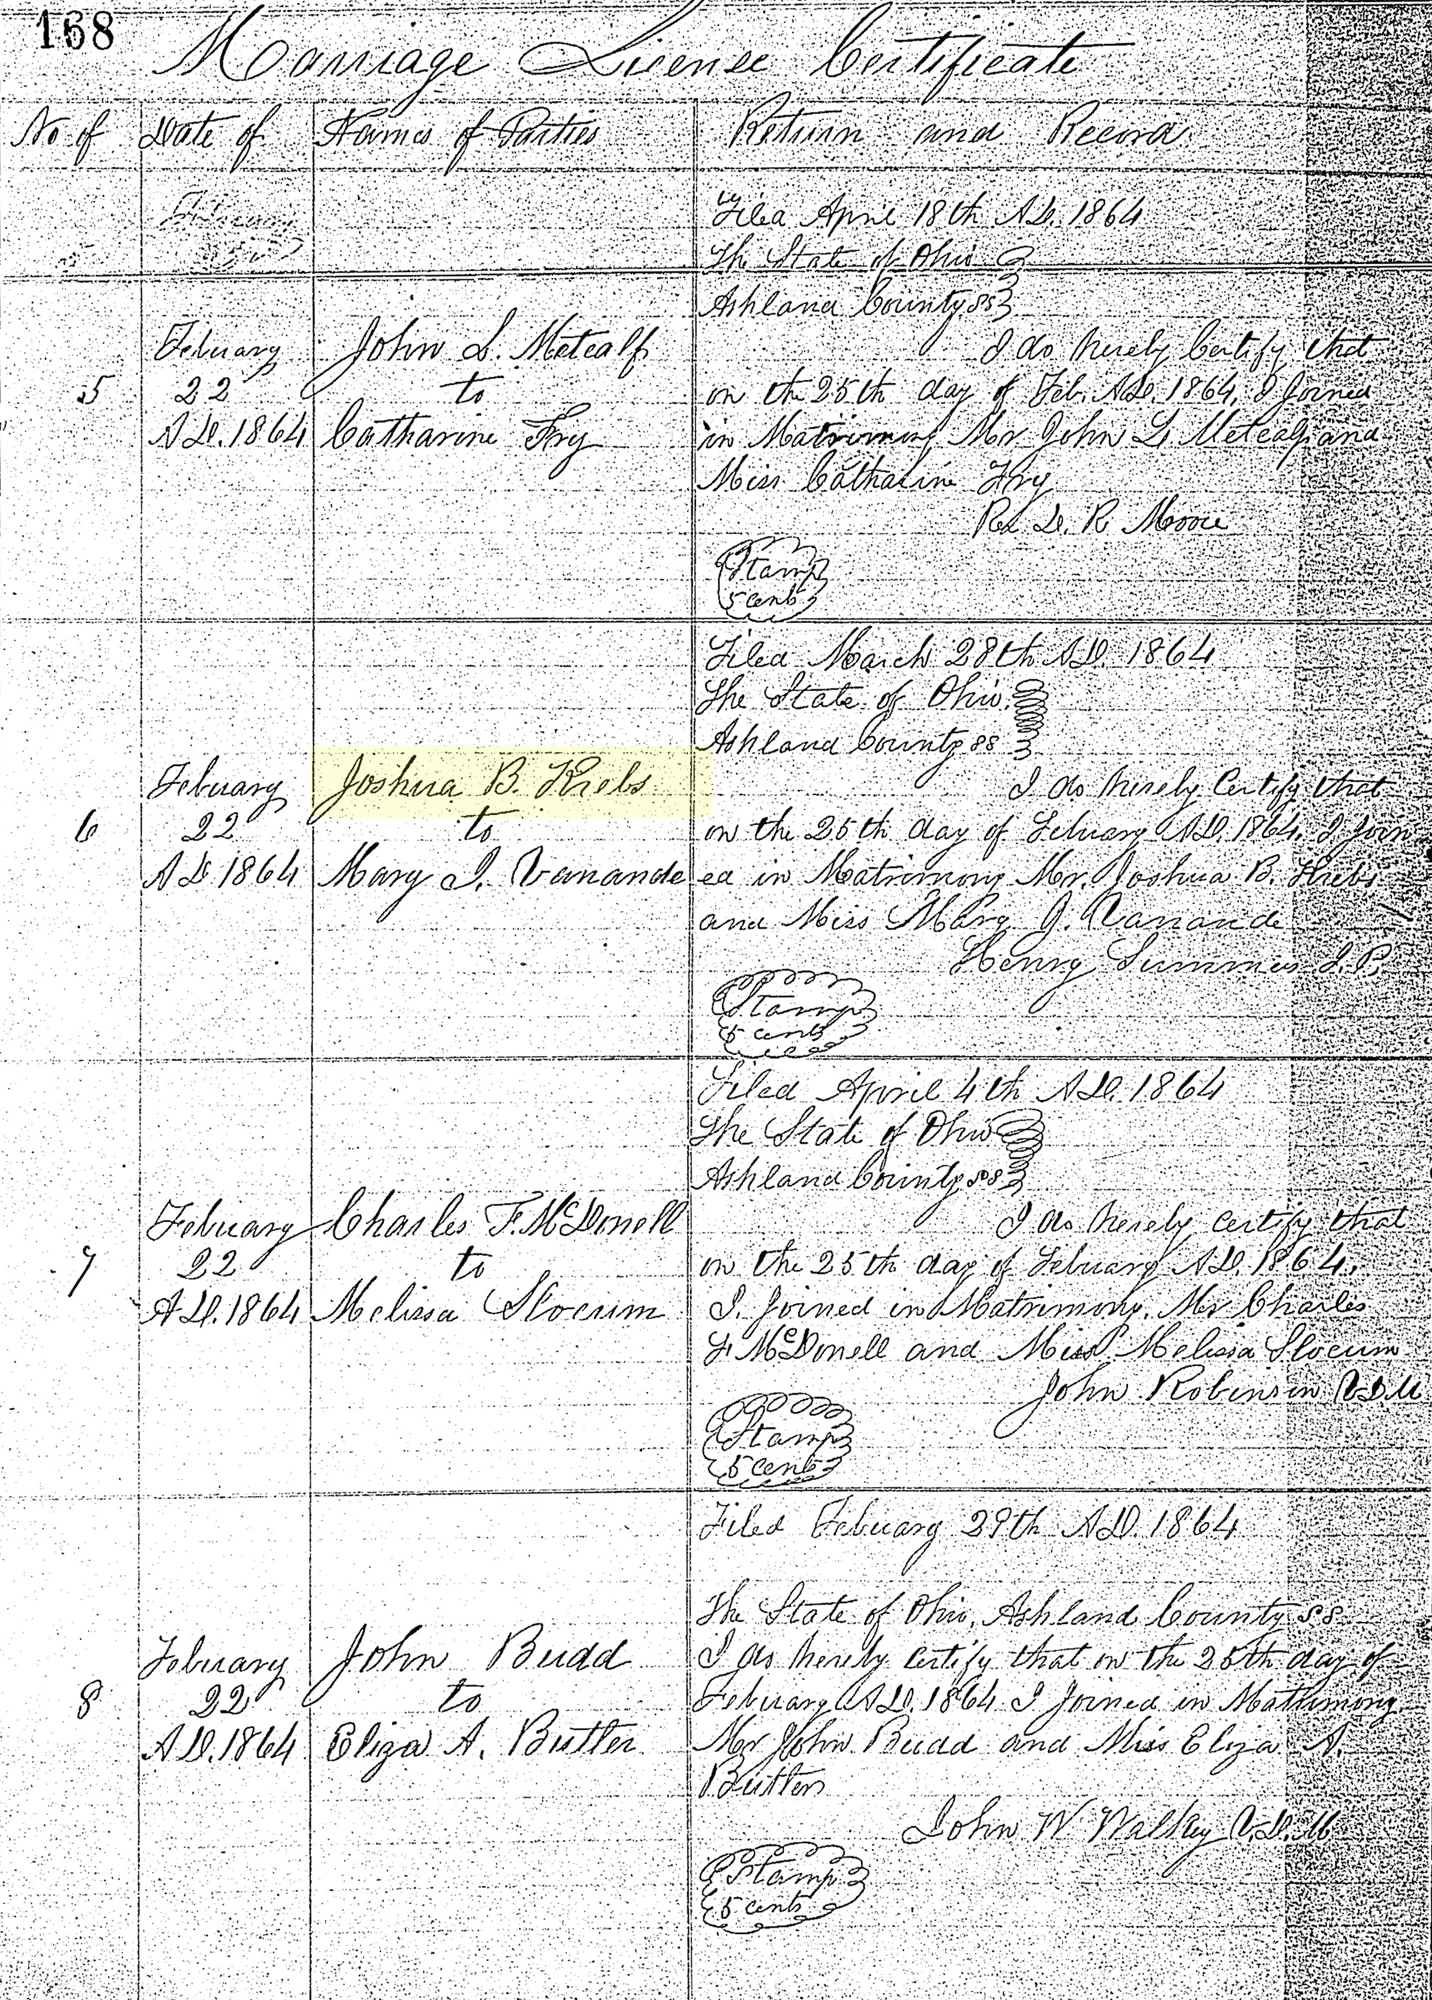 168
Marriage License Certificate
No of Date of Names of Parties Return and Record
February
Filed April 18th A.D. 1864
The State of Ohio
Ashland County ss
February John L. Metcalf I do hereby Certify that
5 22 to on the 25th day of Feb. A.D. 1864, I Joined
A.D. 1864 Catharine Fry in Matrimony Mr John L Metcalf and
Miss Catharine Fry
D. R. Moore
Stamp
5 cents
Filed March 28th A.D. 1864
The State of Ohio.
Ashland County ss
Febuary Joshua B. Krebs I do hereby Certify that
6 22 to on the 25th day of Febuary A.D. 1864. I Join
A.D. 1864 Mary J. Vanande ed in Matrimony Mr. Joshua B. Krebs
and Miss Mary J. Vanande
Henry Summers J.P.
Stamp
5 cents
Filed April 4th A.D. 1864
The State of Ohio
Ashland County ss
Febuary Charles F. McDonell I do hereby certify that
7 22 to on the 25th day of Febuary A.D. 1864.
A.D. 1864 Melissa Slocum I Joined in Matrimony. Mr Charles
F McDonell and Miss Melissa Slocum
John Robinson V.D.M
Stamp
5 cents
Filed Febuary 29th A.D. 1864
The State of Ohio, Ashland County ss
Febuary John Budd I do hereby certify that on the 25th day of
8 22 to Febuary A.D. 1864 I Joined in Matrimony
A.D. 1864 Eliza A. Butler Mr John Budd and Miss Eliza A.
Butler
John W Walkey V.D.M
Stamp
5 cents